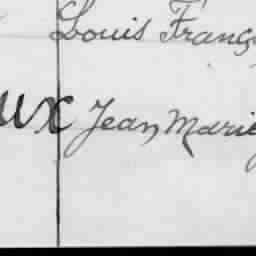 Louis Franç
ux Jean Marie